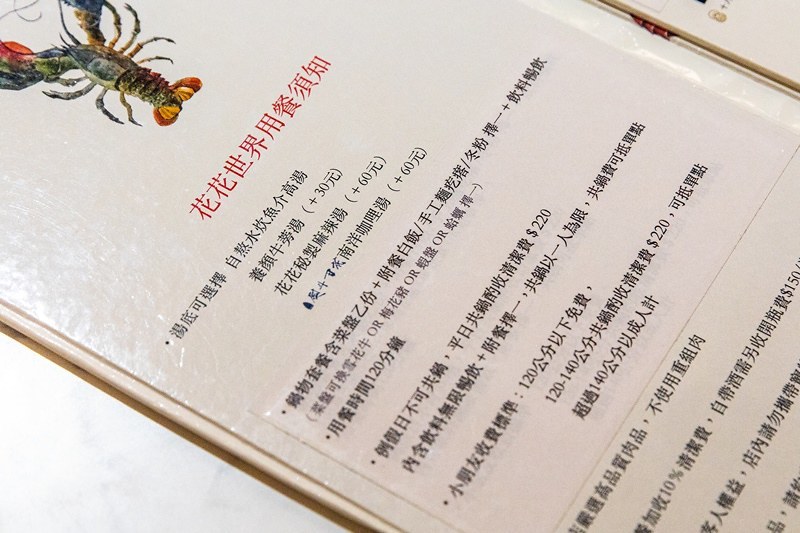 花花世界用餐須知
•湯底可選擇 自熬水炊魚介高湯
養顏牛蒡湯 (+30元)
花花秘製麻辣湯 (+60元)
南洋咖哩湯 (+60元)
•鍋物套餐含菜盤乙份+附餐白飯/手工麵疙瘩/冬粉 擇一+飲料暢飲
(菜盤可換雪花牛OR梅花豬OR蝦盤OR蛤蠣 擇一)
•用餐時間120分鐘
•例假日不可共鍋,平日共鍋酌收清潔費$220
內含飲料無限暢飲+附餐擇一,共鍋以一人為限,共鍋費可抵單點
•小朋友收費標準:120公分以下免費,
120-140公分共鍋酌收清潔費$220,可抵單點
超過140公分以成人計
嚴選高品質肉品,不使用重組肉
加收10%清潔費,自帶酒需另收開瓶費$150
客人權益,店內請勿攜帶寵
品,請